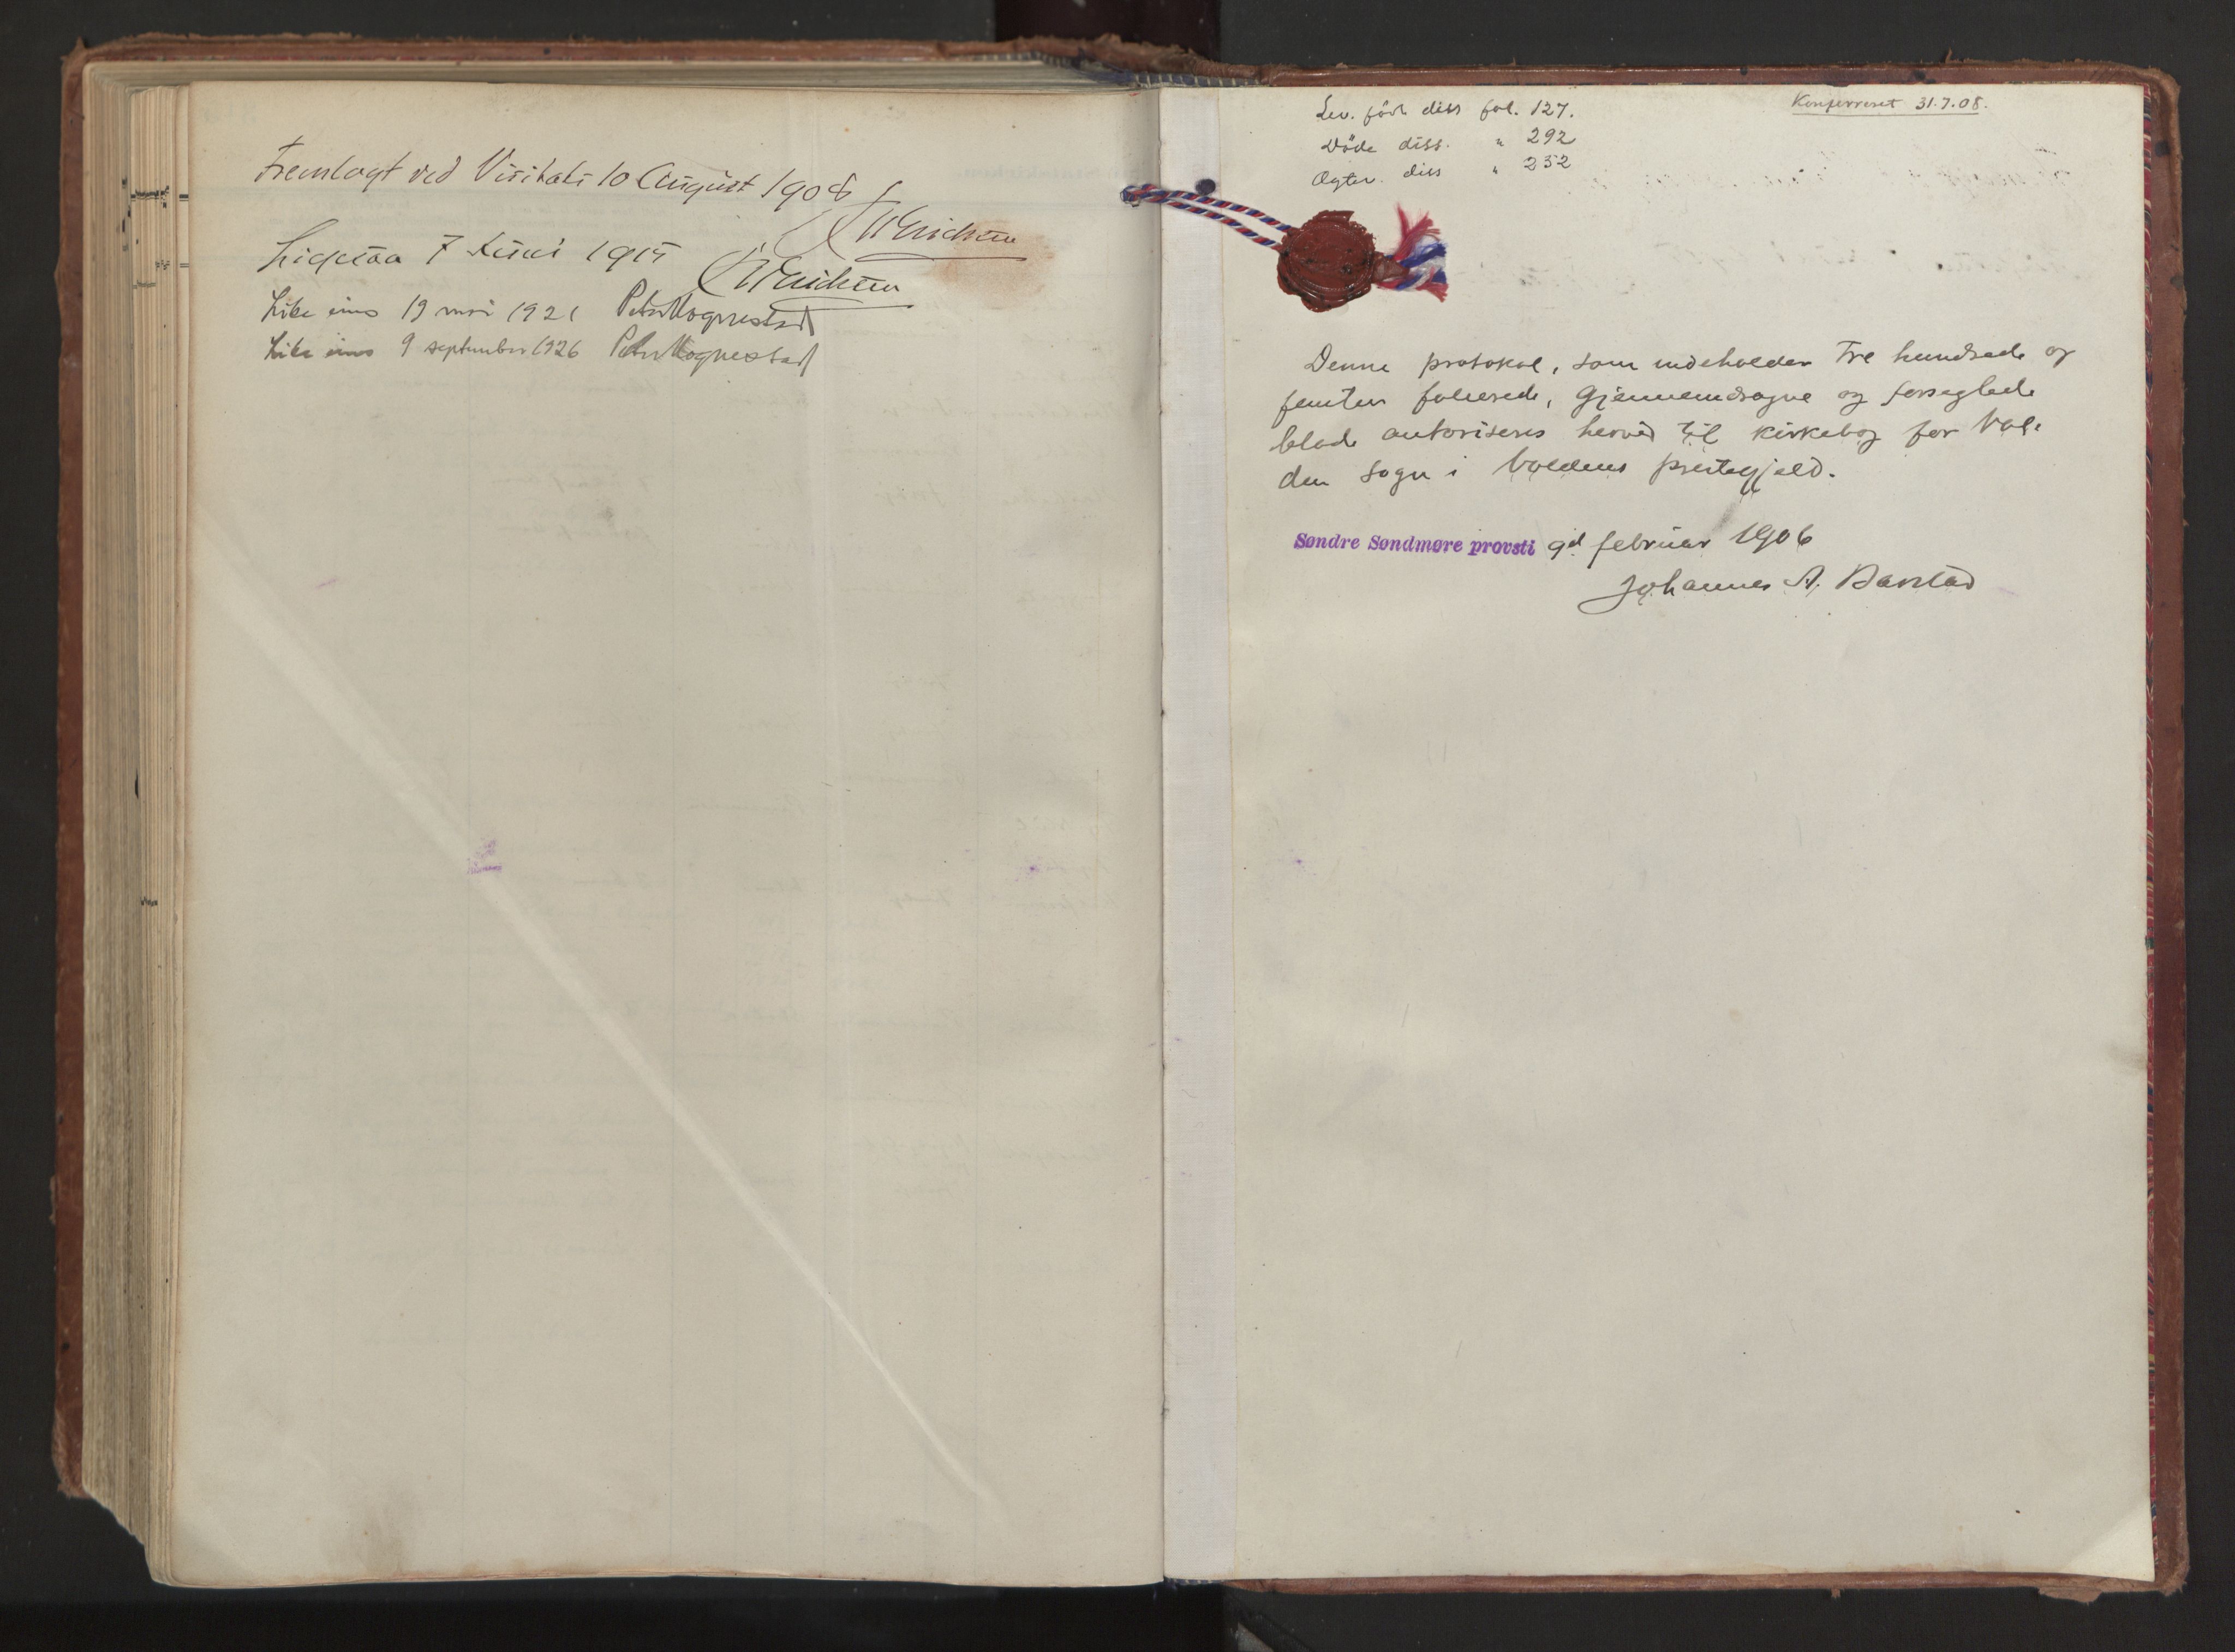 Fremlagt ved Visitats 10 August 1908
Erichsen
Ligesaa 7 Juni 1915
Erichsen
Like eins 19 mai 1921 Peter Hognestad
Like eins 9 september 1926 Peter Hognestad
Lev. född diss fol. 127.
Döde diss. " 292
Ægtev. diss " 252
Konferreret 31.7.08.
Denne protokol, som indeholder tre hundrede og
femten folierede, gjennemdragne og forseglede
blade autoriseres herved til kirkebog for Vol-
den sogn i Voldens prestegjeld.
Søndre Søndmøre provsti 9d februar 1906
Johannes A. Barstad